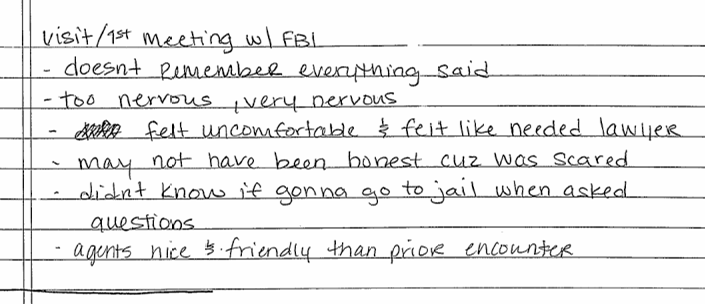 visit/1st meeting w/ FBI
- doesnt remember everything said
- too nervous, very nervous
- felt uncomfortable & felt like needed lawyer
- may not have been honest cuz was scared
- didnt know if gonna go to jail when asked
questions
- agents nice & friendly than prior encounter